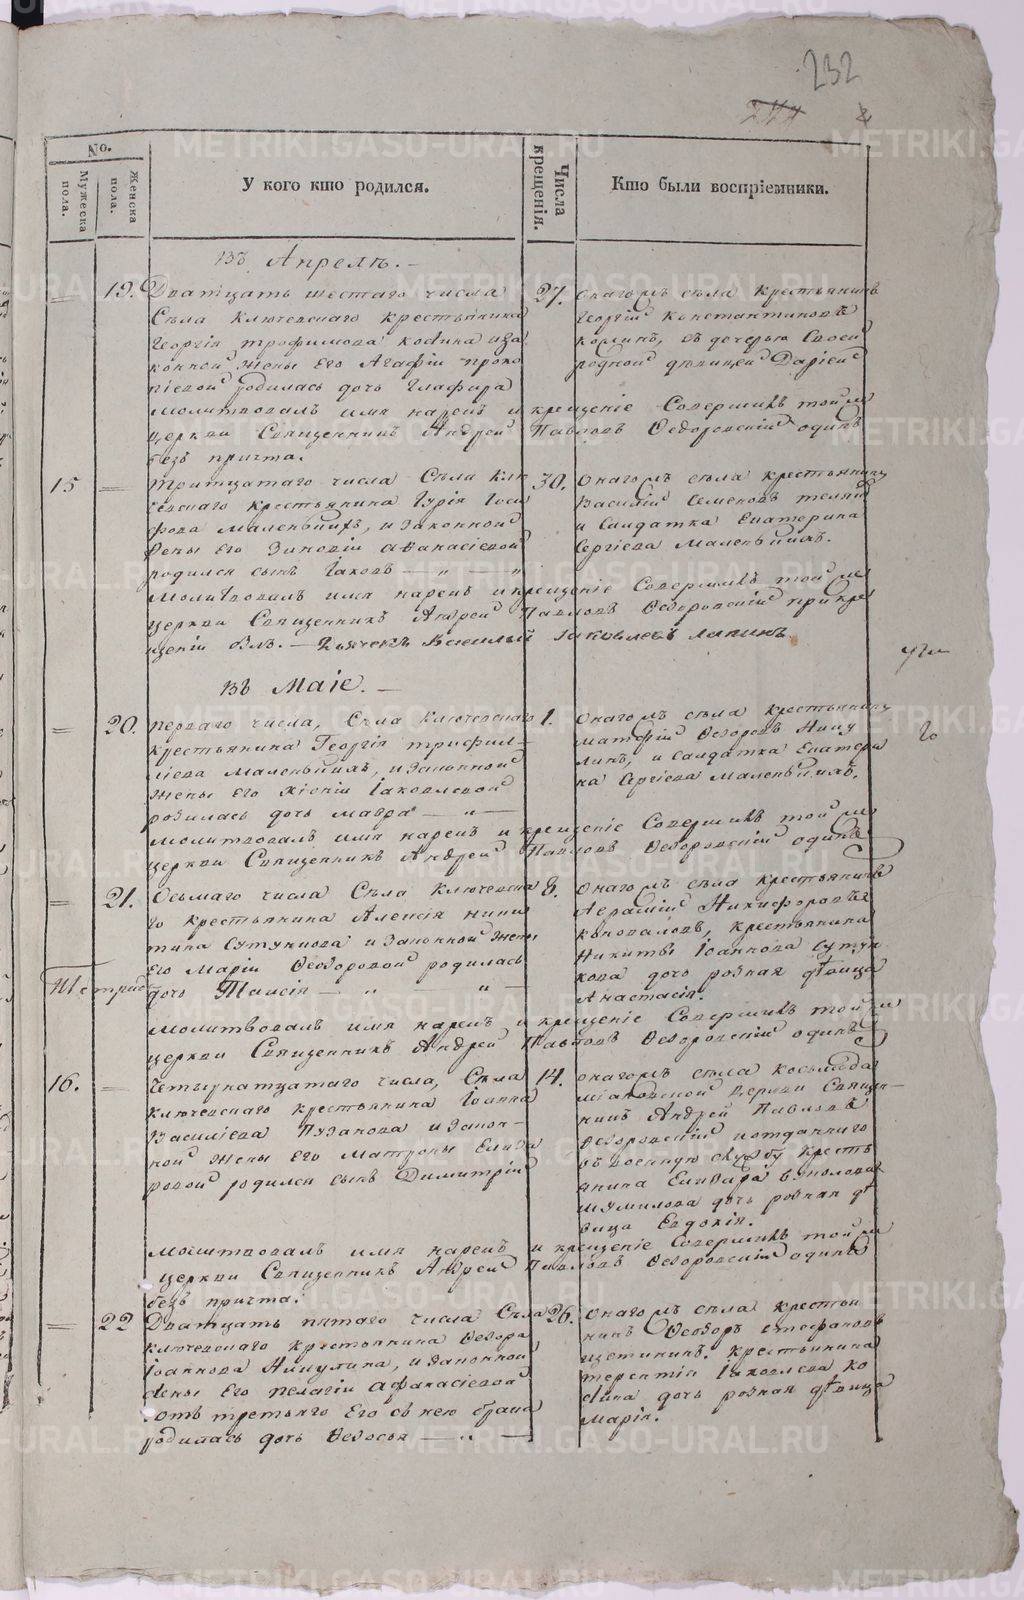 232
No.
Мужеска пола.
Женска пола.
У кого кто родился.
Числа крещенія.
Кто были воспріемники.
Въ Апрелѣ.
19. Дватцать шестаго числа
Села Ключевскаго крестьянина
Георгія Трофимова Кокина и за
конной жены его Агафіи Проко
піевой родилась дочь Глафира
27. Онагожъ села крестьянинъ
Георгій Константиновъ
съ дочерью своей
родной дѣвицей Даріей
Молитвовалъ имя нарекъ и крещеніе Совершилъ той же
церкви Священникъ Андрей Павловъ Ѳедоровскій одинъ
безъ причта.
15 Тритцатаго числа Села Клю
чевскаго крестьянина Гурія Іоси
фова Маленьких, и законной
жены его Зиновіи Аѳанасіевой
родился сынъ Іаковъ
30. Онагожъ села крестьянинъ
Василій Семеновъ
и Салдатка Екатерина
Сергіева Маленькихъ.
Молитвовалъ имя нарекъ и крещеніе Совершилъ той же
церкви Священникъ Андрей Павловъ Ѳедоровскій при кре
щеніи былъ. Дьячекъ Василій Іаковлевъ Лапинъ.
Въ Маіе.
20. перваго числа, Села Ключевскаго
крестьянина Георгія Трифил
ліева Маленькихъ, и законной
жены его Ксеніи Іаковлевой
родилась дочь Мавра
1. Онагожъ села крестьянинъ
Матфій Ѳедоровъ Аику
линъ, и Салдатка Екатери
на Сергіева Маленькихъ.
Молитвовалъ имя нарекъ и крещеніе Совершилъ той же
церкви Священникъ Андрей Павловъ Ѳедоровскій одинъ
21. Осьмаго числа Села Ключевска
го крестьянина Алексія Ники
тина Сутункова и законной жены
его Маріи Ѳедоровой родилась
дочь Таисія
8. Онагожъ села крестьянинъ
Аврамій Никифоровъ
Коноваловъ, крестьянина
Никиты Іоаннова Сутун
кова дочь родная дѣвица
Анастасія.
Молитвовалъ имя нарекъ и крещеніе Совершилъ той же
церкви Священникъ Андрей Павловъ Ѳедоровскій одинъ
16. Четырнатцатаго числа, Села
Ключевскаго крестьянина Іоанна
Василіева Пузанова и закон
ной жены его Матроны Елиза
ровой родился сынъ Димитрій
14. онагожъ села Косьмода
міановской церкви Священ
никъ Андрей Павловъ
Ѳедоровскій и отданнаго
въ военную службу кресть
янина Елизара
Шумилова дочь родная дѣ
вица Евдокія.
Молитвовалъ имя нарекъ и крещеніе Совершилъ той же
церкви Священникъ Андрей Павловъ Ѳедоровскій одинъ
безъ причта.
22 Дватцать пятаго числа Села
Ключевскаго крестьянина Ѳедора
Іоаннова Аикулина, и законной
жены его Пелагіи Афанасіевой
отъ третьяго его съ нею брака
родилась дочь Ѳедосья
26. Онагожъ села крестья
нинъ Ѳеодоръ Стефановъ
Щетининъ. крестьянина
Терентія Іаковлева Ко
кина дочь родная дѣвица
Марія.